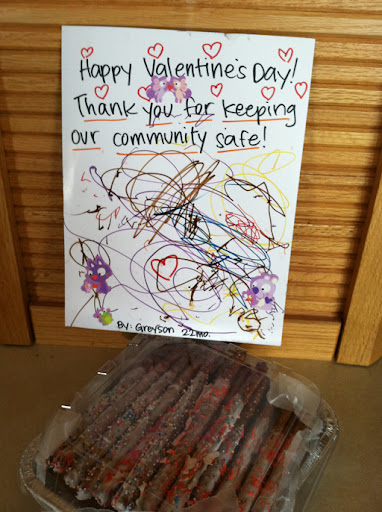 Happy Valentine's Day!
Thank you for keeping
our community safe!
By: Greyson 22mo.